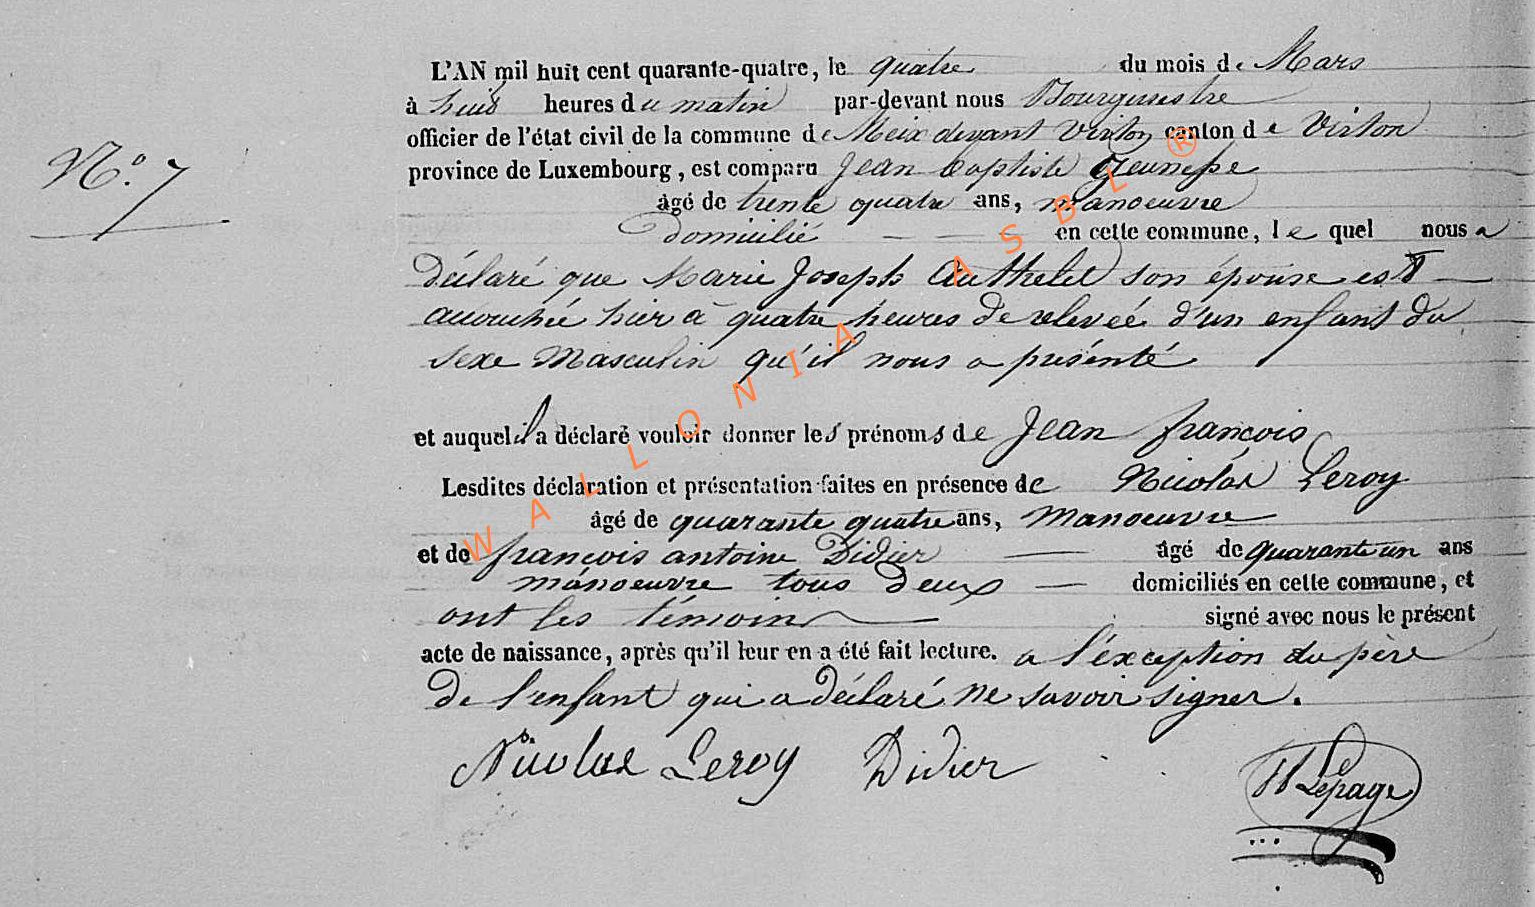 N.º 7
L'AN mil huit cent quarante-quatre, le quatre du mois de Mars
à huit heures du matin par-devant nous Bourgmestre
officier de l'état civil de la commune de Meix devant Virton canton de Virton
province de Luxembourg, est comparu Jean baptiste
âgé de trente quatre ans, manoeuvre
Domicilié en cette commune, lequel nous a
Déclaré que Marie Joseph Authelet son épouse est
accouchée hier à quatre heures de relevée d'un enfant du
sexe Masculin qu'il nous a présenté
et auquel il a déclaré vouloir donner les prénoms de Jean françois
Lesdites déclaration et présentation faites en présence de Nicolas Leroy
âgé de quarante quatre ans, Manoeuvre
et de françois antoine Didier âgé de quarante un ans
manoeuvre tous deux domiciliés en cette commune, et
ont les témoins signé avec nous le présent
acte de naissance, après qu'il leur en a été fait lecture. a l'exception du père
De l'enfant qui a déclaré ne savoir signer.
Nicolas Leroy Didier Lepage
WALLONIA ASBL ®